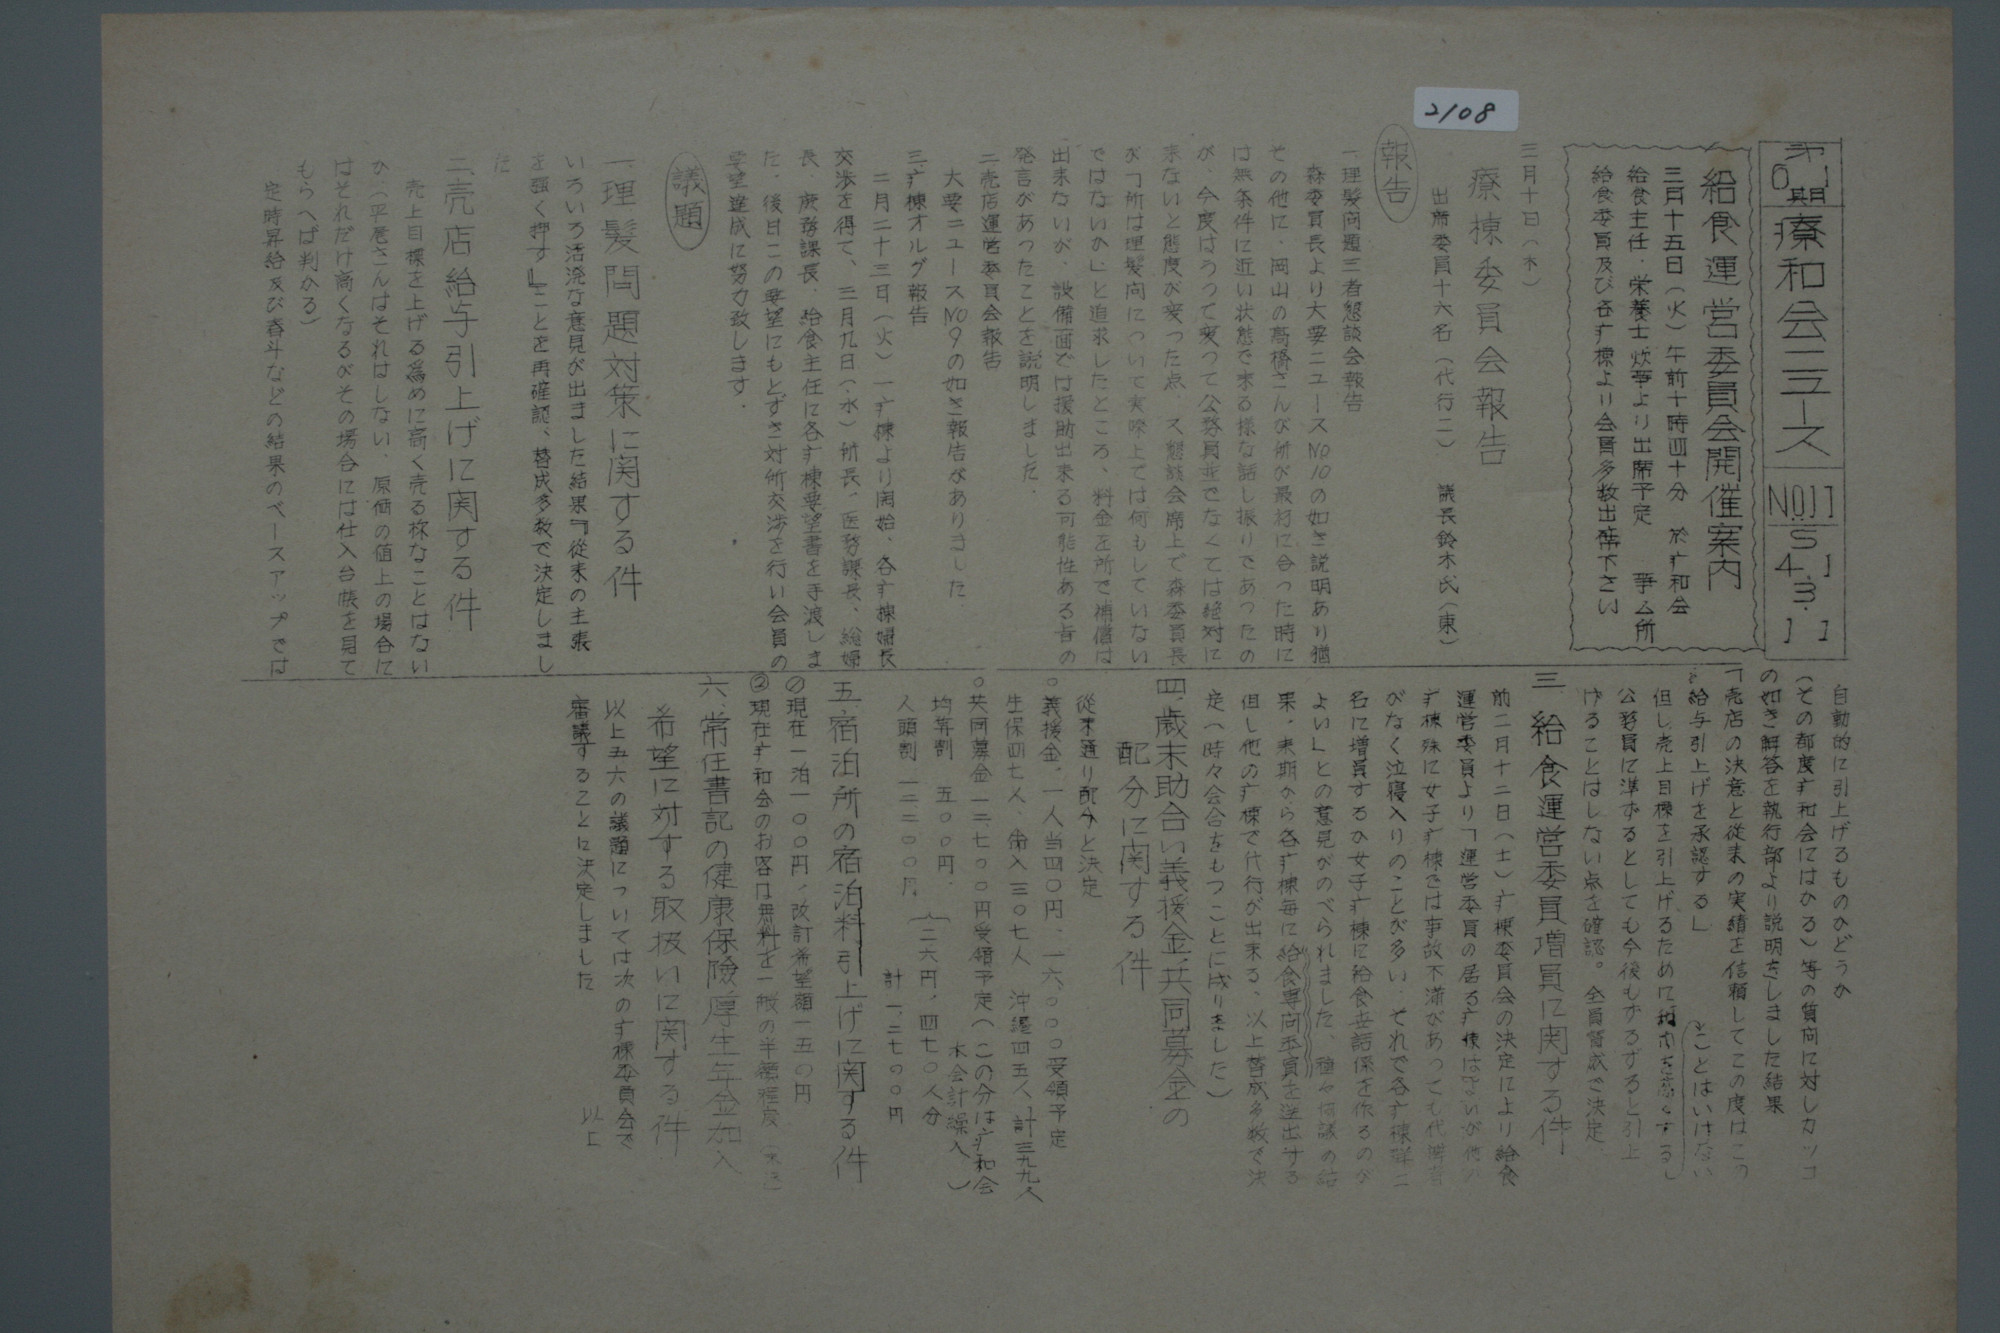 2108
第61期
療和会ニュース
NO.11
S41.3.11
給食運営委員会開催案内
三月十五日(火)午前十時四十分 於疒和会
給食主任.栄養士炊事より出席予定 事ム所
給食委員及び各疒棟より会員多数出席下さい
三月十日(木)
療棟委員会報告
出席委員十六名(代行二) 議長鈴木氏(東)
報告
一、理髪问題三者懇談会報告
森委員長より大要ニュースNO10の如き説明あり猶
その他に、岡山の高橋さんが所が最初に合った時に
は無条件に近い状態で来る様な話し振りであったの
が、今度はうって変って公務員並でなくては絶対に
来ないと態度が変った点、又懇談会席上で森委員長
が「所は理髪问について実際上では何もしていない
ではないか」と追求したところ、料金を所で補償は
出来ないが、設備面では援助出来る可能性ある旨の
発言があったことを説明しました.
二、売店運営委員会報告
大要ニュースNO9の如き報告がありました.
三、疒棟オルグ報告
二月二十三日(火)一疒棟より開始、各疒棟婦長
交渉を得て、三月九日(水)所長、医務課長、総婦
長、庶務課長、給食主任に各疒棟要望書を手渡しま
た、後日この要望にもとずき対所交渉を行い会員の
要望達成に努力致します.
議題
一、理髪問題対策に関する件
いろいろ活溌な意見が出ました結果『従来の主張
を強く押す』ことを再確認、替成多数で決定しまし
た
二、売店給与引上げに関する件
売上目標を上げる為めに高く売る称なことはない
か(平尾さんはそれはしない、原価の値上の場合に
はそれだけ高くなるがその場合には仕入台帳を見て
もらへば判かる)
定時昇給及び春斗などの結果のベースアップでは
自動的に引上げるものかどうか
(その都度疒和会にはかる)等の質问に対しカッコ
の如き解答を執行部より説明をしました結果
「売店の決意と従来の実績を信頼してこの度はこの
給与引上げを承認する」
但し売上目標を引上げるために
ことはいけない
公務員に準ずるとしても今後もずるずると引上
げることはしない点を確認。全員賛成で決定
三、給食運営委員増員に関する件
前二月十二日(土)疒棟委員会の決定により給食
運営委員より「運営委員の居る疒棟はよいが他の
疒棟殊に女子疒棟では事故不満があっても代弁者
がなく泣寝入りのことが多い.それで各疒棟毎二
名に増員するか女子疒棟に給食世話係を作るのが
よい」との意見がのべられました、種々何議の結
果、来期から各疒棟毎に給食専问委員を送出する
但し他の疒棟で代行が出来る、以上替成多数で決
定(時々会合をもつことに成りました)
四、歳末助合い義援金、共同募金の
配分に関する件
従来通り配分と決定
○義援金、一人当四〇円、一六、〇〇〇受領予定
生保四七人、 三〇七人 沖縄四五人 計三九九人
○共同募金一二、七〇〇円受領予定(この分は疒和会
本会計繰入)
均等割 五〇〇円.
人頭割 一二二〇〇円
(二六円、四七〇人分
計一、二七〇〇円
五、宿泊所の宿泊料引上げに関する件
①現在一泊一〇〇円、改訂希望額一五〇円
②現在疒和会のお客は無料を一般の半額程度
六、常任書記の健康保険、厚生年金加入
希望に対する取扱いに関する件
以上五六の議題については次の疒棟委員会で
審議することに決定しました
以上